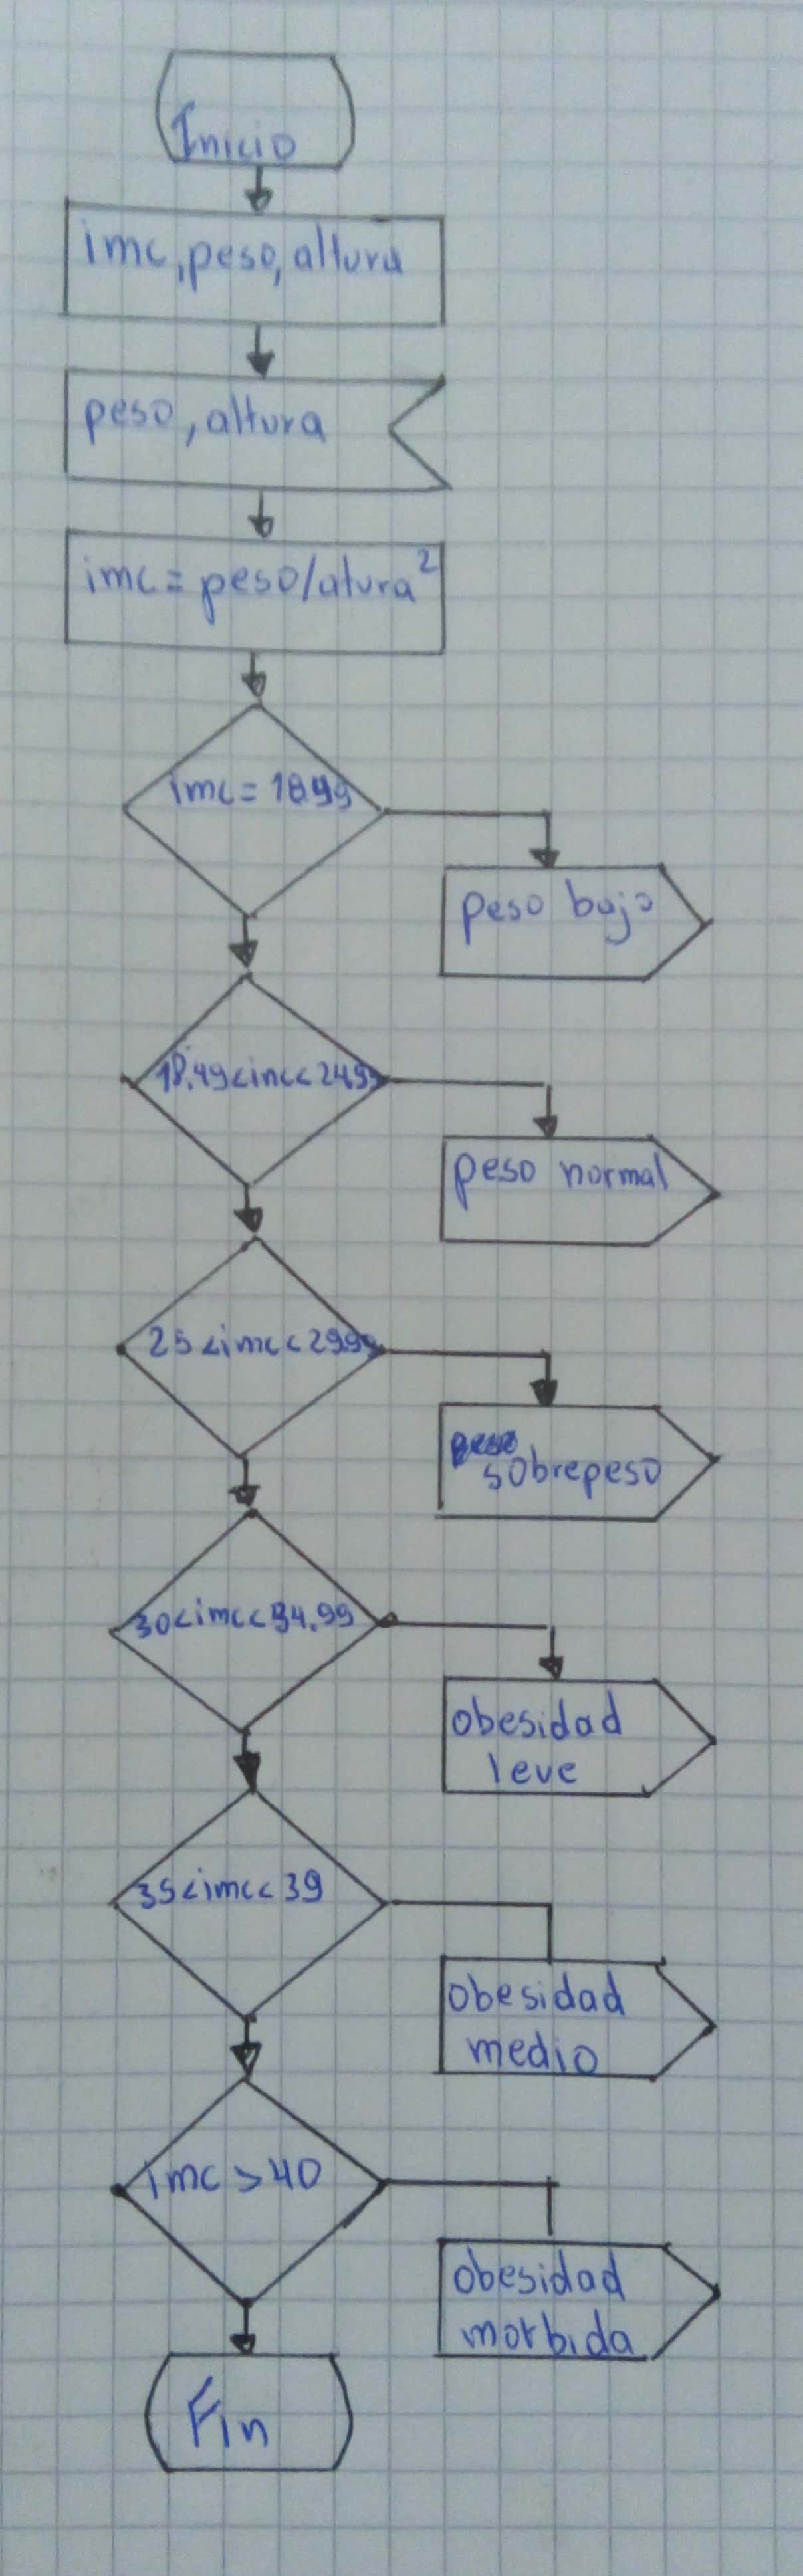 Inicio
imc, peso, altura
peso, altura
imc = peso/atura²
imc = 18.99
peso bajo
18.49<imc<24.99
peso normal
25<imc<29.99
peso
sobrepeso
30<imc<34.99
obesidad
leve
35<imc<39
obesidad
medio
imc >40
obesidad
morbida
Fin